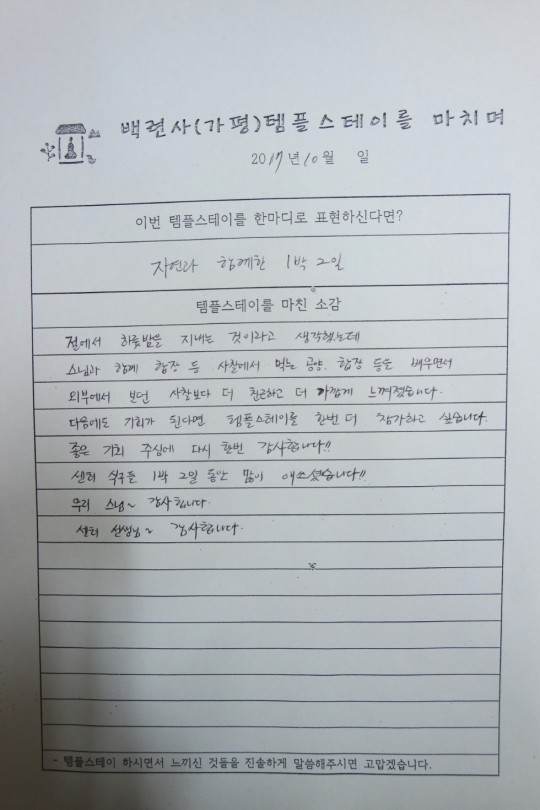 백련사(가평)템플스테이를 마치며
2017년 10월 일
이번 템플스테이를 한마디로 표현하신다면?
자연과 함께한 1박 2일
템플스테이를 마친 소감
절에서 하룻밤을 지내는 것이라고 생각했는데
스님과 함께 합장 등 사찰에서 먹는 공양, 합장 등을 배우면서
외부에서 보던 사찰보다 더 친근하고 더 가깝게 느껴졌습니다.
다음에도 기회가 된다면 템플스테이를 한번 더 참가하고 싶습니다.
좋은 기회 주심에 다시 한번 감사합니다!!
센터 식구들 1박 2일 동안 많이 애쓰셨습니다!!
우리 스님~ 감사합니다.
센터 선생님~ 감사합니다.
- 템플스테이 하시면서 느끼신 것들을 진솔하게 말씀해주시면 고맙겠습니다.